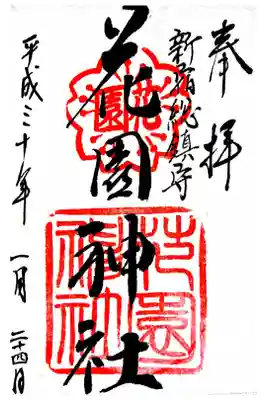 奉拝
新宿総鎮守
花園神社
平成三十年 一月 二十四日
花園
花園神社